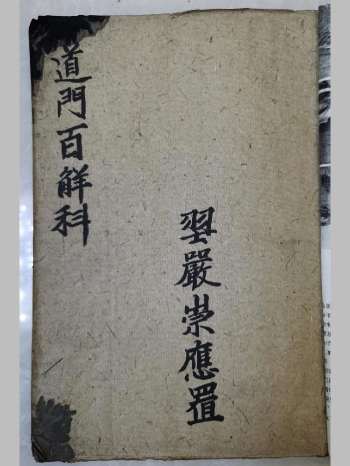 道門百解科
翌嚴崇應置